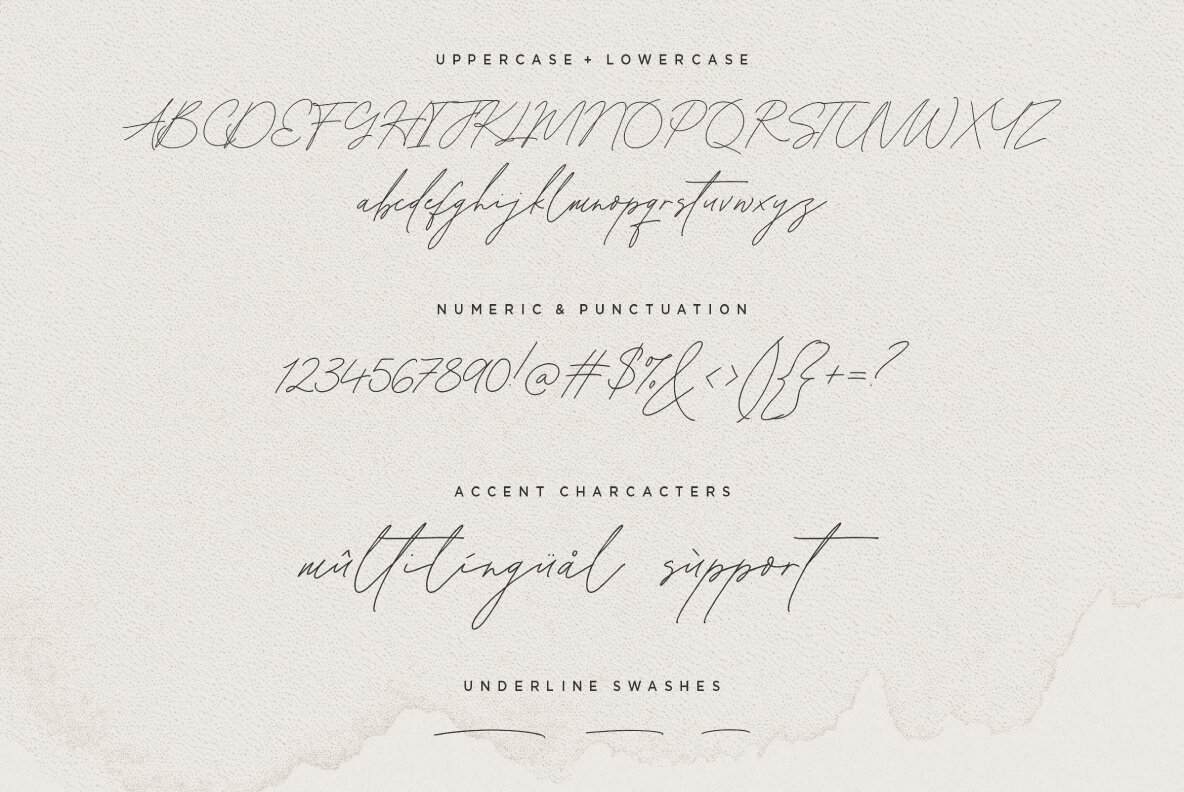 UPPERCASE + LOWERCASE
ABCDEFGHIJKLMNOPQRSTUVWXYZ
abcdefghijklmnopqrstuvwxyz
NUMERIC & PUNCTUATION
1234567890!@#$%&<>(){}+=?
ACCENT CHARCACTERS
mûltilíngüål sùpport
UNDERLINE SWASHES